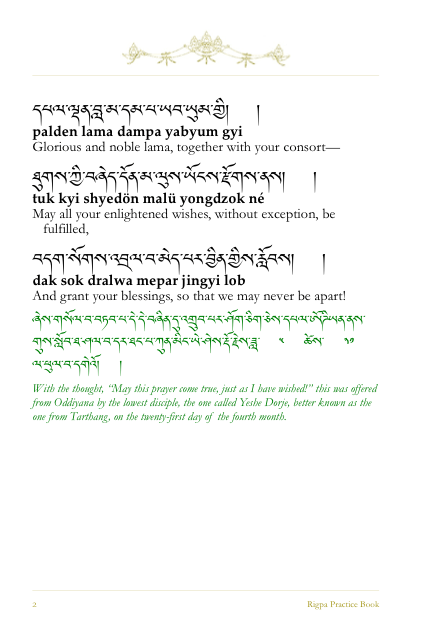 དཔལ་ལྡན་བླ་མ་དམ་པ་ཡབ་ཡུམ་གྱི། །
palden lama dampa yabyum gyi
Glorious and noble lama, together with your consort—
ཐུགས་ཀྱི་བཞེད་དོན་མ་ལུས་ཡོངས་རྫོགས་ནས། །
tuk kyi shyedön malü yongdzok né
May all your enlightened wishes, without exception, be
fulfilled,
བདག་སོགས་འབྲལ་བ་མེད་པར་བྱིན་གྱིས་རློབས། །
dak sok dralwa mepar jingyi lob
And grant your blessings, so that we may never be apart!
ཞེས་གསོལ་བ་བཏབ་པ་དེ་དེ་བཞིན་དུ་འགྲུབ་པར་ཤོག་ཅིག་ཅེས་དཔལ་ཨོ་ཌིཡན་ནས་
གུས་སློབ་ཐ་ཤལ་བ་དར་ཐང་པ་ཀུན་མིང་ཡེ་ཤེས་རྡོ་རྗེས་ཟླ་ ༤ ཚེས་ ༢༡
ལ་ཕུལ་བ་དགེའོ། །
With the thought, “May this prayer come true, just as I have wished!” this was offered
from Oddiyana by the lowest disciple, the one called Yeshe Dorje, better known as the
one from Tarthang, on the twenty-first day of the fourth month.
2
Rigpa Practice Book